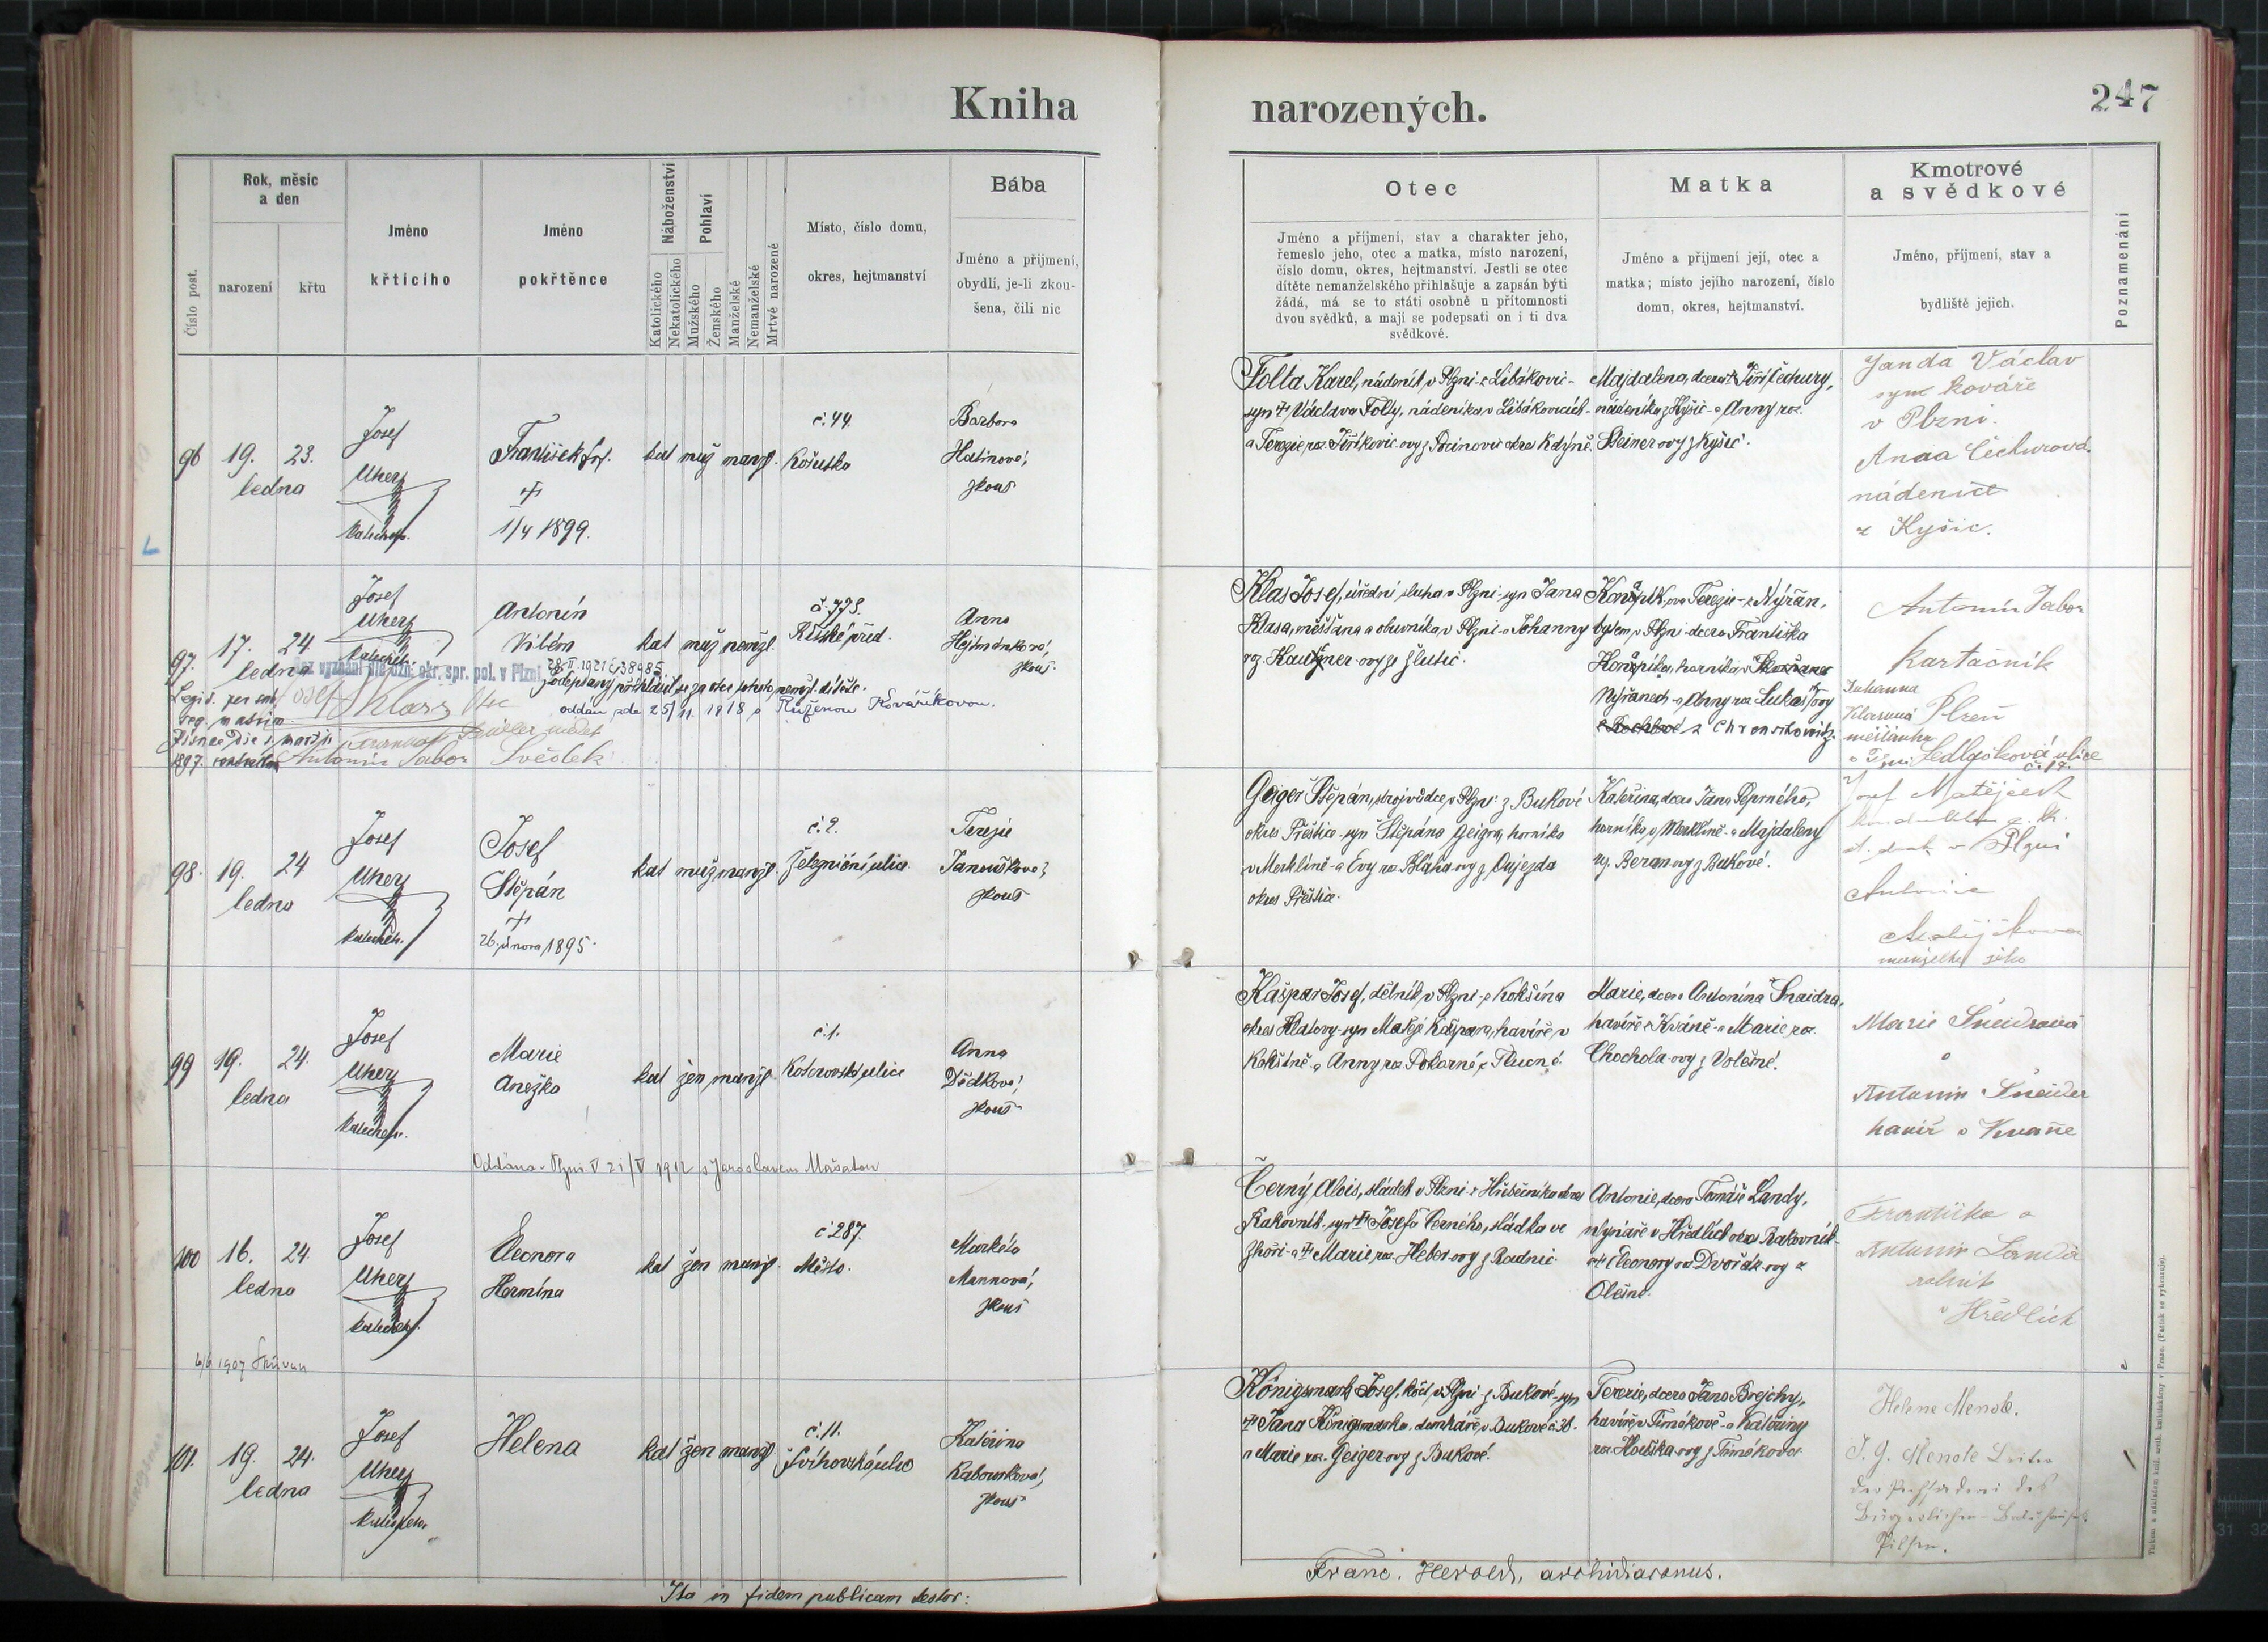 Kniha narozených.
247
Číslo post.
Rok, měsíc
a den
narození
křtu
Jméno
křtícího
Jméno
pokřtěnce
Náboženství
Katolického
Nekatolického
Pohlaví
Mužského
Ženského
Manželské
Nemanželské
Mrtvě narozené
Místo, číslo domu,
okres, hejtmanství
Bába
Jméno a příjmení,
obydlí, je-li zkou-
šena, čili nic
Otec
Jméno a příjmení, stav a charakter jeho,
řemeslo jeho, otec a matka, místo narození,
číslo domu, okres, hejtmanství. Jestli se otec
dítěte nemanželského přihlašuje a zapsán býti
žádá, má se to státi osobně u přítomnosti
dvou svědků, a mají se podepsati on i ti dva
svědkové.
Matka
Jméno a příjmení její, otec a
matka; místo jejího narození, číslo
domu, okres, hejtmanství.
Kmotrové
a svědkové
Jméno, příjmení, stav a
bydliště jejich.
Poznamenání
96 19. 23.
ledna
Josef
Uherz
katecheta.
František Jos.
+
1/4 1899.
kat muž manž.
č. 44.
Košutka
Barbora
Halinová,
zkouš
Folta Karel, nádeník v Plzni z Libákovic-
syn + Václava Folty, nádeníka v Libákovicích-
a Terezie roz. Jiříkovic-ovy z okres Kdýně.
Majdalena, dcera + Jiří Čechury,
nádeníka z Kyšic - a Anny roz.
Steiner ovy z Kyšic.
Janda Václav
syn kováře
v Plzni.
Anna Čechurová
nádenice
z Kyšic.
97. 17. 24.
ledna
Josef
Uherz
katecheta.
Antonín
Vilém
kat muž nemžl.
č. 775.
Říšské před.
Anna
Hejtmánková,
zkouš.
Bez vyznání dle ozn. okr. spr. pol. v Plzni
28.II.1921 č. 38985
Podepsaný přihlásil se za otce tohoto nemžl. dítěte.
oddán zde 25/11. 1918 s Růženou Kovaříkovou.
Legit. per sub
seq. matrim.
1897.
Josef Klas Otec
Antonín Tabor Svědek
Klas Josef, úřední sluha v Plzni - syn Jana
Klasa, měšťana a obuvníka v Plzni - a Johanny
roz. ovy ze Žlutic.
ova Terezie - z Nýřan,
bytem v Plzni - dcera Františka
horníka v
Nýřanech - a Anny roz. Lukeš ovy
Antonín Tabor
kartáčník
Johanna
Klasová Plzeň
měšťanka
v Plzni Sedláčková ulice
98. 19. 24
ledna
Josef
Uherz
katecheta.
Josef
Štěpán
+
26. února 1895.
kat muž manžl.
č. 2.
Železniční ulice
Terezie
Janoušková,
zkouš
Geiger Štěpán, strojvůdce v Plzni z Bukové
okres Přeštice - syn Štěpána Geigra, horníka
v Merklíně - a Evy roz. Bláha-ovy z Oujezda
okres Přeštice.
Kateřina, dcera Jana Peprného,
horníka v Merklíně - a Majdaleny
roz. Beran ovy z Bukové.
Josef Matějček
Plzni
Antonie
Matějčkova
manželka jeho
99 19. 24.
ledna
Josef
Uherz
katecheta.
Marie
Anežka
kat žen manžl.
č. 1.
Koterovská ulice
Anna
Dědková,
zkouš
Oddána v Plzni 21/V 1912 s Jaroslavem Mašatou
Kašpar Josef, dělník v Plzni - z Kokšína
okres Klatovy - syn Matěje Kašpara, havíře v
Kokšíně - a Anny roz. Pokorné z Tlucné.
Marie, dcera Antonína Šnaidra,
havíře z Kváně - a Marie roz.
Chochola-ovy z Volešné.
Marie Šneidrová
Antonín Šneider
havíř
100 16. 24.
ledna
Josef
Uherz
katecheta.
Eleonora
Hermína
kat žen manžl.
č 287.
Město.
Markéta
Mannová,
zkouš
4/6 1907 Škůvan
Černý Alois, sládek v Plzni z okres
Rakovník - syn + Josefa Černého, sládka ve
Zhoři - a + Marie roz. Heber-ovy z Radnic.
Antonie, dcera Tomáše Landy,
mlynáře v Hředlích okres Rakovník-
a + Eleonory roz. Dvořák-ovy z
Olešné.
Františka a
Antonín Landa
rolník
v Hředlích
101. 19. 24.
ledna
Josef
Uherz
katecheta
Helena
kat žen manžl.
č. 11.
Švihovská ulice
Kateřina
Kabourková,
zkouš
Königsmark Josef, kočí v Plzni - z Bukové - syn
+ Jana Königsmarka, domkáře v Bukové č. 36.
a Marie roz. Geiger ovy z Bukové.
Terezie, dcera Jana Brejchy,
havíře v Timákově - a Kateřiny
roz. Houška-ovy z Timákova
Helene Mende.
J. G. Mende Leiter
der Pechsiederei des
Bürgerlichen-Bräuhauses
Pilsen.
Ita in fidem publicam testor:
Franc. Herold, archidiaconus.
Tiskem a nákladem kníž. arcib. knihtiskárny v Praze. (Patisk se vyhrazuje).